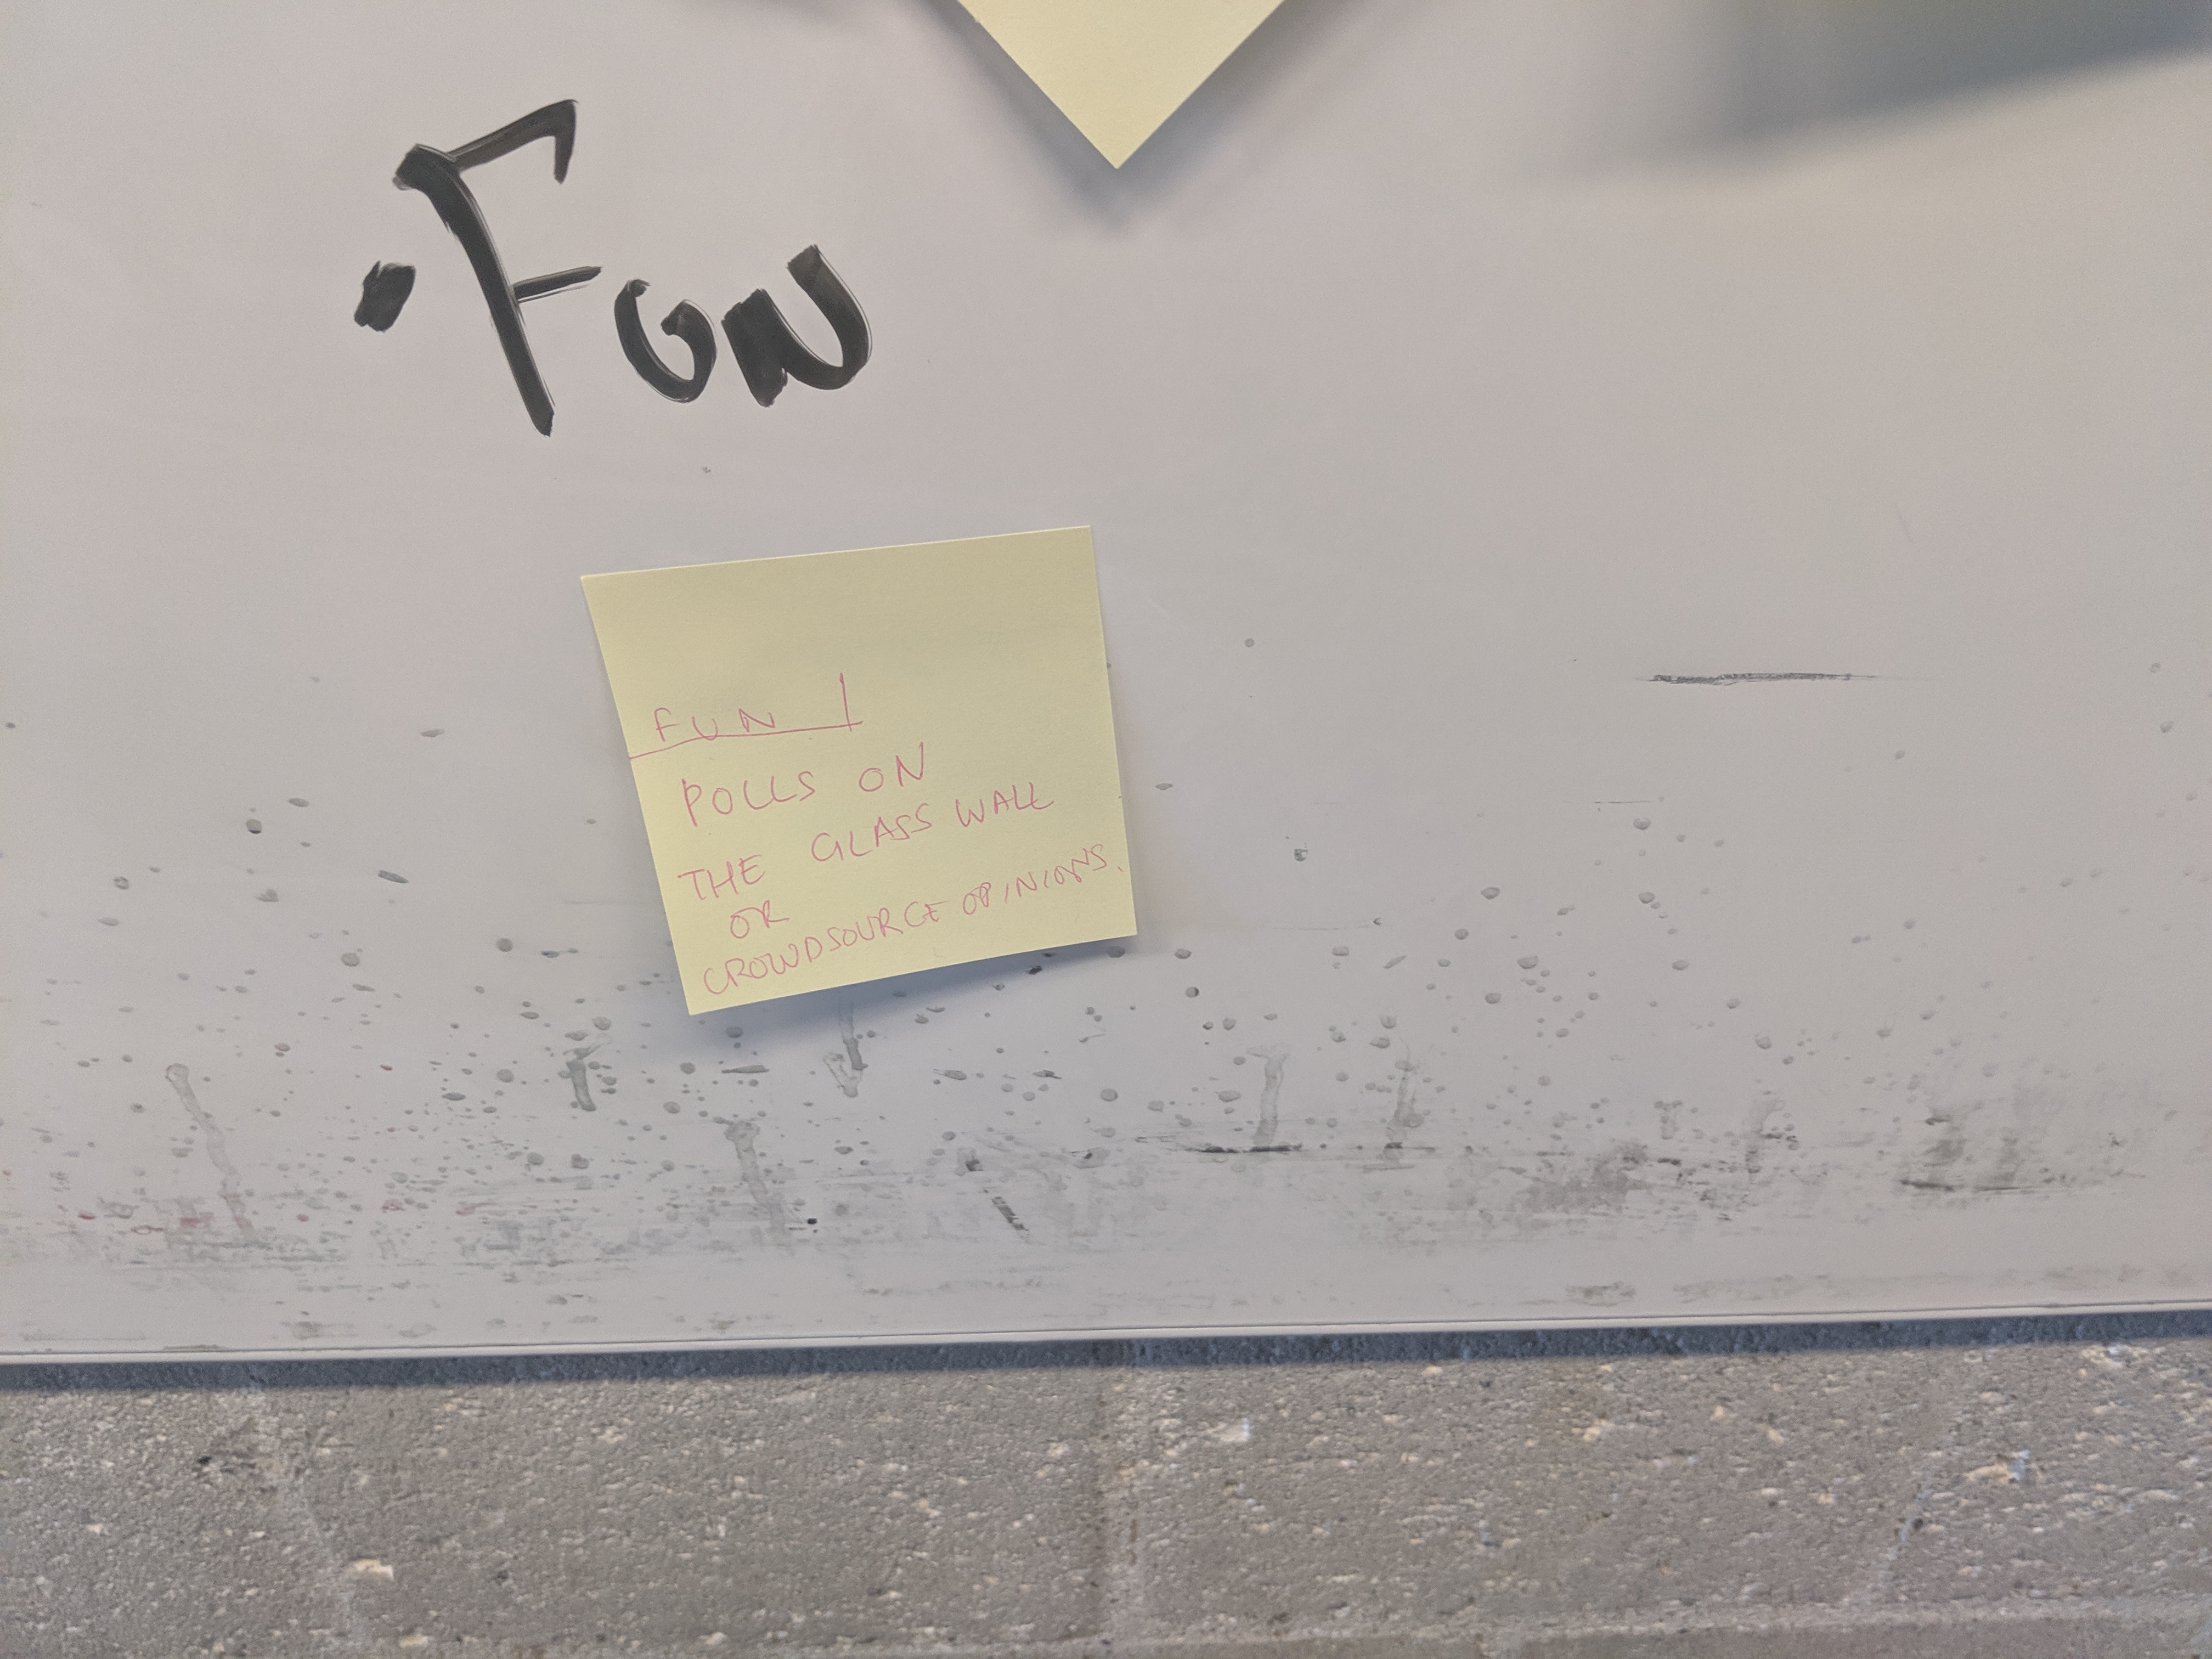 • Fun
FUN!
POLLS ON
THE GLASS WALL
OR
CROWDSOURCE OPINIONS.